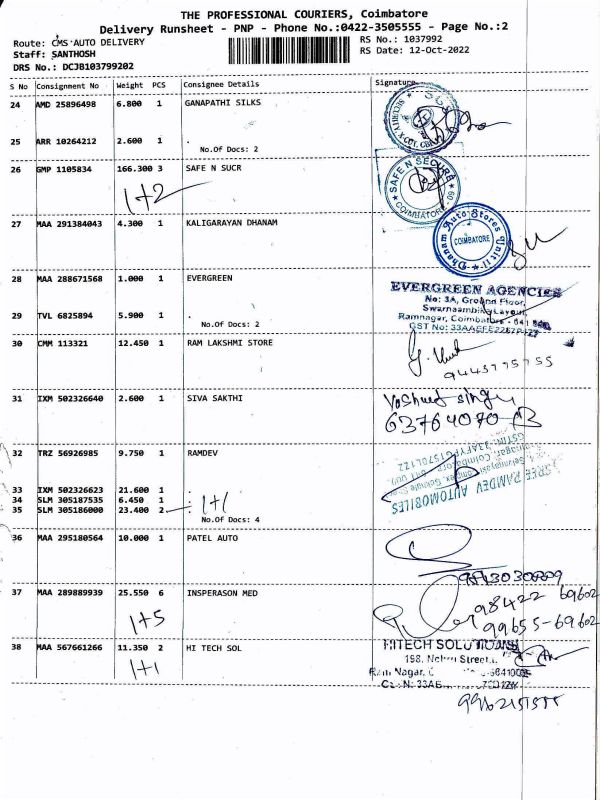 THE PROFESSIONAL COURIERS, Coimbatore
Delivery Runsheet - PNP - Phone No.:0422-3505555 - Page No.:2
Route: CMS AUTO DELIVERY
RS No.: 1037992
Staff: SANTHOSH
RS Date: 12-Oct-2022
DRS No.: DCJB103799202
S No Consignment No Weight PCS Consignee Details Signature
24 AMD 25896498 6.800 1 GANAPATHI SILKS
25 ARR 10264212 2.600 1 .
No.Of Docs: 2
26 GMP 1105834 166.300 3 SAFE N SUCR
1+2
SAFE N SECURE
COIMBATORE
27 MAA 291384043 4.300 1 KALIGARAYAN DHANAM
Dhanam Auto Stores Unit II
COIMBATORE
28 MAA 288671568 1.000 1 EVERGREEN
EVERGREEN AGENCIES
No: 3A, Ground Floor,
Swarnaambika Layout,
Ramnagar, Coimbatore - 641
29 TVL 6825894 5.900 1 .
No.Of Docs: 2
30 CMM 113321 12.450 1 RAM LAKSHMI STORE
9443775755
31 IXM 502326640 2.600 1 SIVA SAKTHI
32 TRZ 56926985 9.750 1 RAMDEV
SREE RAMDEV AUTOMOBILES
33 IXM 502326623 21.600 1 .
34 SLM 305187535 6.450 1 .
35 SLM 305186000 23.400 2 .
1+1
No.Of Docs: 4
36 MAA 295180564 10.000 1 PATEL AUTO
37 MAA 289889939 25.550 6 INSPERASON MED
1+5
98422 69602
99655-69602
38 MAA 567661266 11.350 2 HI TECH SOL
1+1
HITECH SOLUTIONS
198, Nehru Street,
Ram Nagar,